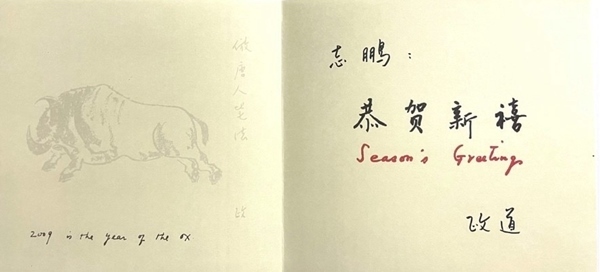 仿唐人笔法
政
2009 is the year of the ox
志鹏：
恭贺新禧
Season's Greetings
政道